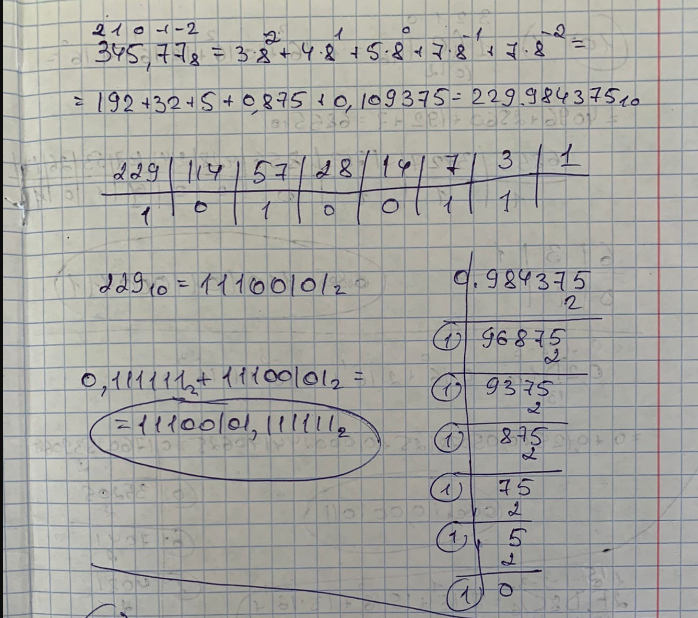 2 1 0 -1 -2
345,77₈ = 3·8² + 4·8¹ + 5·8⁰ + 7·8⁻¹ + 7·8⁻² =
= 192+32+5+0,875+0,109375 = 229.984375₁₀
229 | 114 | 57 | 28 | 14 | 7 | 3 | 1
1 | 0 | 1 | 0 | 0 | 1 | 1
229₁₀ = 11100101₂
0,111111₂ + 11100101₂ =
= 11100101,111111₂
0.984375
2
1 | 96875
2
1 | 9375
2
1 | 875
2
1 | 75
2
1 | 5
2
1 | 0